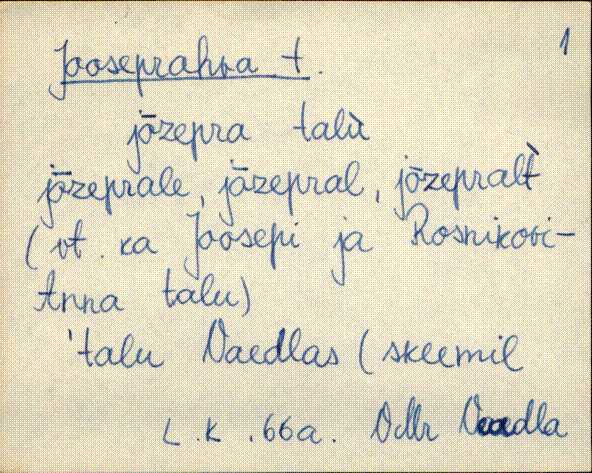 1
Jooseprahva t.
jōzepra talù
jōzeprale, jōzepral, jōzepralt̀
(vt. ka Joosepi ja Rosnikovi-
Anna talu)
'talu Vaedlas (skeemil
L.K. 66a. Vllr Vaedla